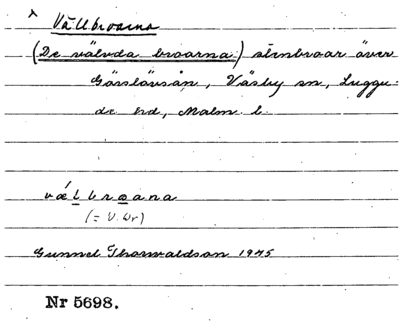 Vällbroarna
(De välvda broarna) stenbroar över
Görslövsån, Väsby sn, Luggu-
de hd, Malm. l.
vǽllbrωana
(= U. Wr)
Gunnel Thorwaldson 1945
Nr 5698.